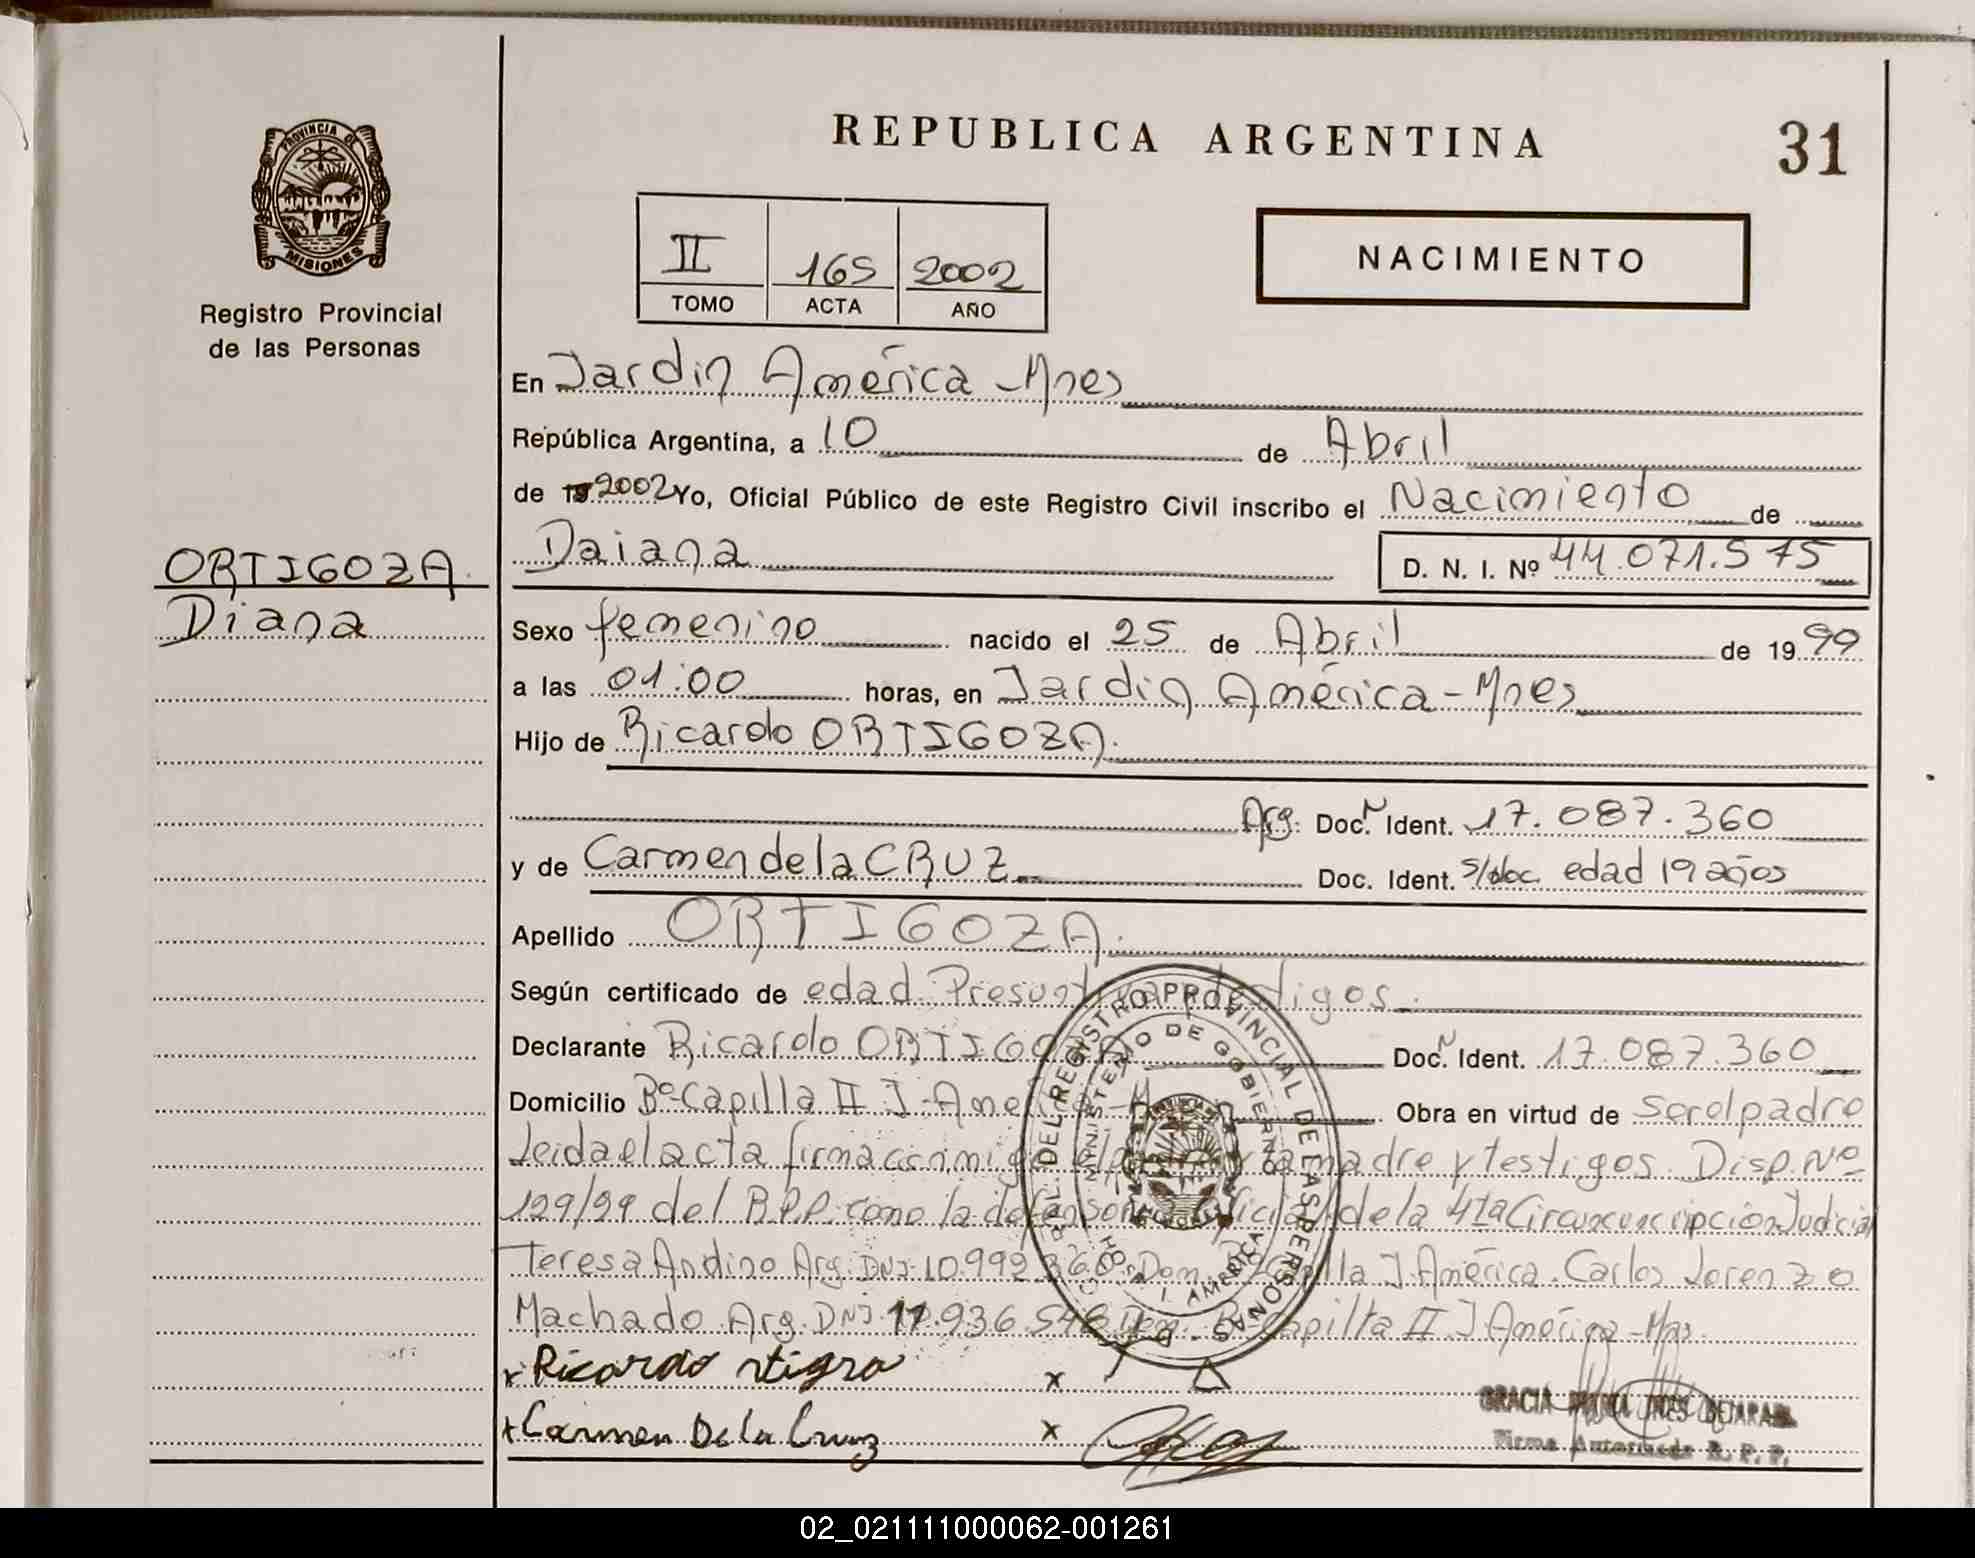 PROVINCIA DE
MISIONES
Registro Provincial
de las Personas
ORTIGOZA.
Diana
REPUBLICA ARGENTINA
31
II 165 2002
TOMO ACTA AÑO
NACIMIENTO
En Jardin América - Mnes
República Argentina, a 10 de Abril
de 19 2002 Yo, Oficial Público de este Registro Civil inscribo el Nacimiento de
Daiana D. N. I. Nº 44.071.575
Sexo femenino nacido el 25 de Abril de 1999
a las 01:00 horas, en Jardin América - Mnes
Hijo de Ricardo ORTIGOZA.
Arg. Doc. N Ident. 17.087.360
y de Carmen de la CRUZ Doc. Ident. s/doc. edad 19 años
Apellido ORTIGOZA.
Según certificado de edad Presuntiva y testigos.
Declarante Ricardo ORTIGOZA Doc. N Ident. 17.087.360
Domicilio Bº Capilla II J. América - M Obra en virtud de ser el padre
Leida el acta firma conmigo el padre y la madre y testigos. Disp. Nº
129/99 del R.P.P. como la defensoria oficial de la 4ta Judicial
Teresa Andino Arg. DNI 10.992.360 Dom. Capilla J. América. Carlos Lorenzo
Machado Arg. DNI. 11.936.548 Dom. Bº Capilla II J América - Mns.
REGISTRO PROVINCIAL DE LAS PERSONAS
MINISTERIO DE GOBIERNO
J. AMERICA
x Ricardo rtigza x
x Carmen De la Cruz x
GRACIA
Firma Autorizada R. P. P.
02_021111000062-001261